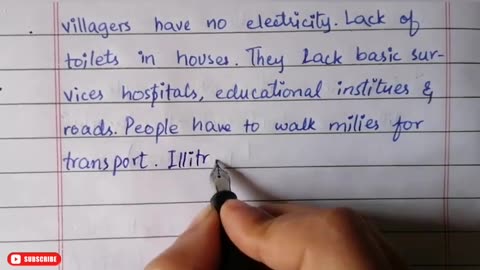 villagers have no electricity. Lack of
toilets in houses. They Lack basic sur-
vices hospitals, educational institues &
roads. People have to walk milies for
transport. Illitr
SUBSCRIBE